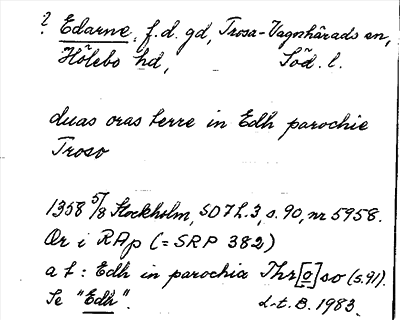 ? Edarne, f.d. gd, Trosa-Vagnhärads sn,
Hölebo hd, Söd. l.
duas oras terre in Edh parochie
Troso
1358 5/8 Stockholm, SD 7 h.3, s. 90, nr 5958.
Or i RAp (= SRP 382)
a t : Edh in parochia Thr[o]so (s.91).
Se "Edh". L-t. B. 1983.